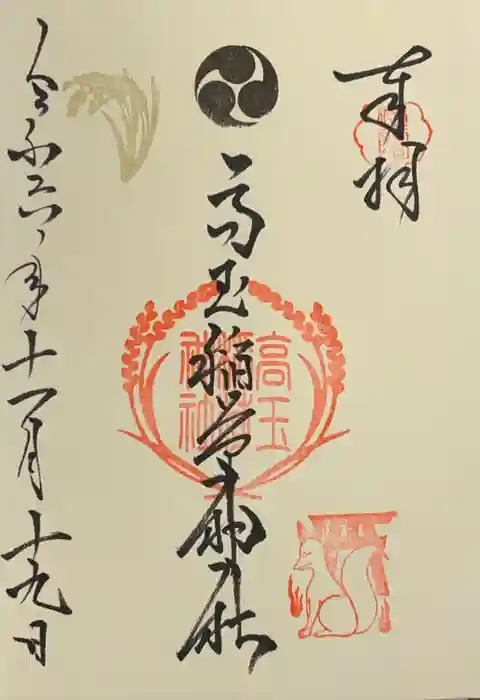 奉拝
高玉稲荷社
高玉
稲荷
神社
令和六年十一月十九日